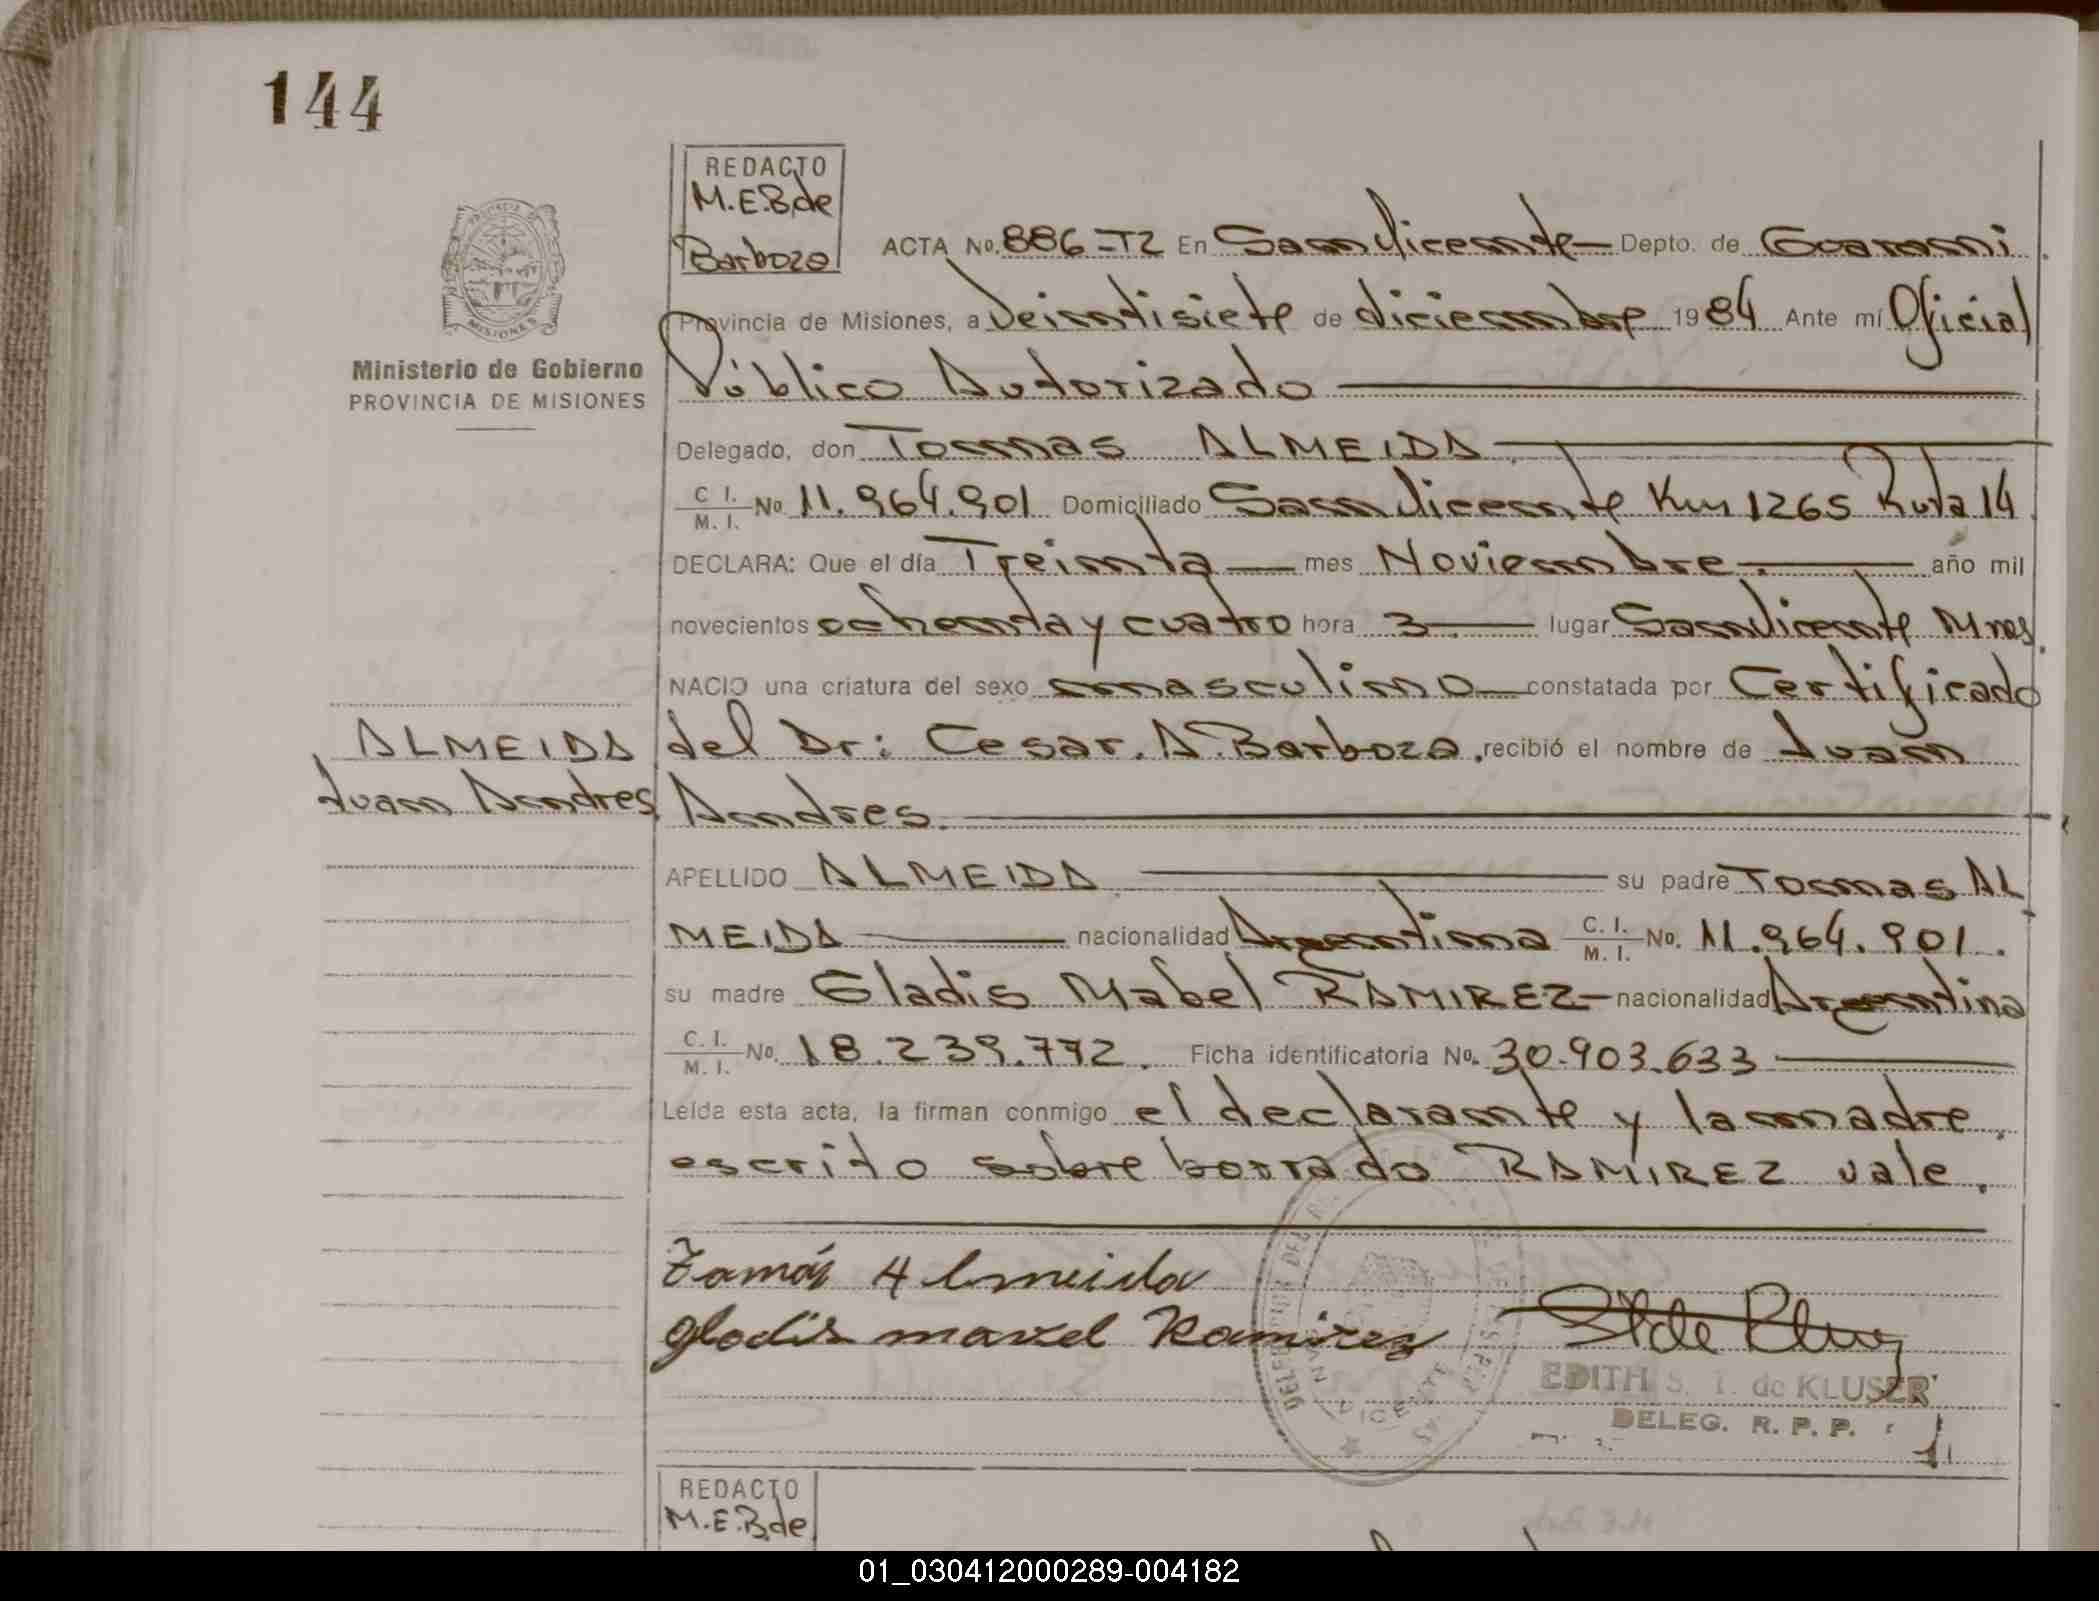 144
REDACTO
M.E.B.de
Barboza
ACTA No. 886-T2 En San Vicente Depto. de Guarani.
Provincia de Misiones, a Veintisiete de diciembre 1984 Ante mí Oficial
Público Autorizado
Ministerio de Gobierno
PROVINCIA DE MISIONES
Delegado, don Tomas ALMEIDA
C I. / M. I. No. 11.964.901 Domiciliado San Vicente Km 1265 Ruta 14.
DECLARA: Que el día Treinta mes Noviembre. año mil
novecientos ochenta y cuatro hora 3. lugar San Vicente Mnes.
NACIO una criatura del sexo masculino constatada por Certificado
ALMEIDA
Juan Andres
del Dr: Cesar. A. Barboza, recibió el nombre de Juan
Andres.
APELLIDO ALMEIDA su padre Tomas AL
MEIDA nacionalidad Argentina C. I. / M. I. No. 11.964.901.
su madre Gladis Mabel RAMIREZ nacionalidad Argentina
C. I. / M. I. No. 18.239.772. Ficha identificatoria No. 30.903.633
Leída esta acta, la firman conmigo el declarante y la madre.
escrito sobre borrado RAMIREZ vale.
Tomás Almeida
Gladis mavel Ramirez
EDITH S. T. de KLUSER
DELEG. R. P. P.
REDACTO
M.E.B.de
01_030412000289-004182